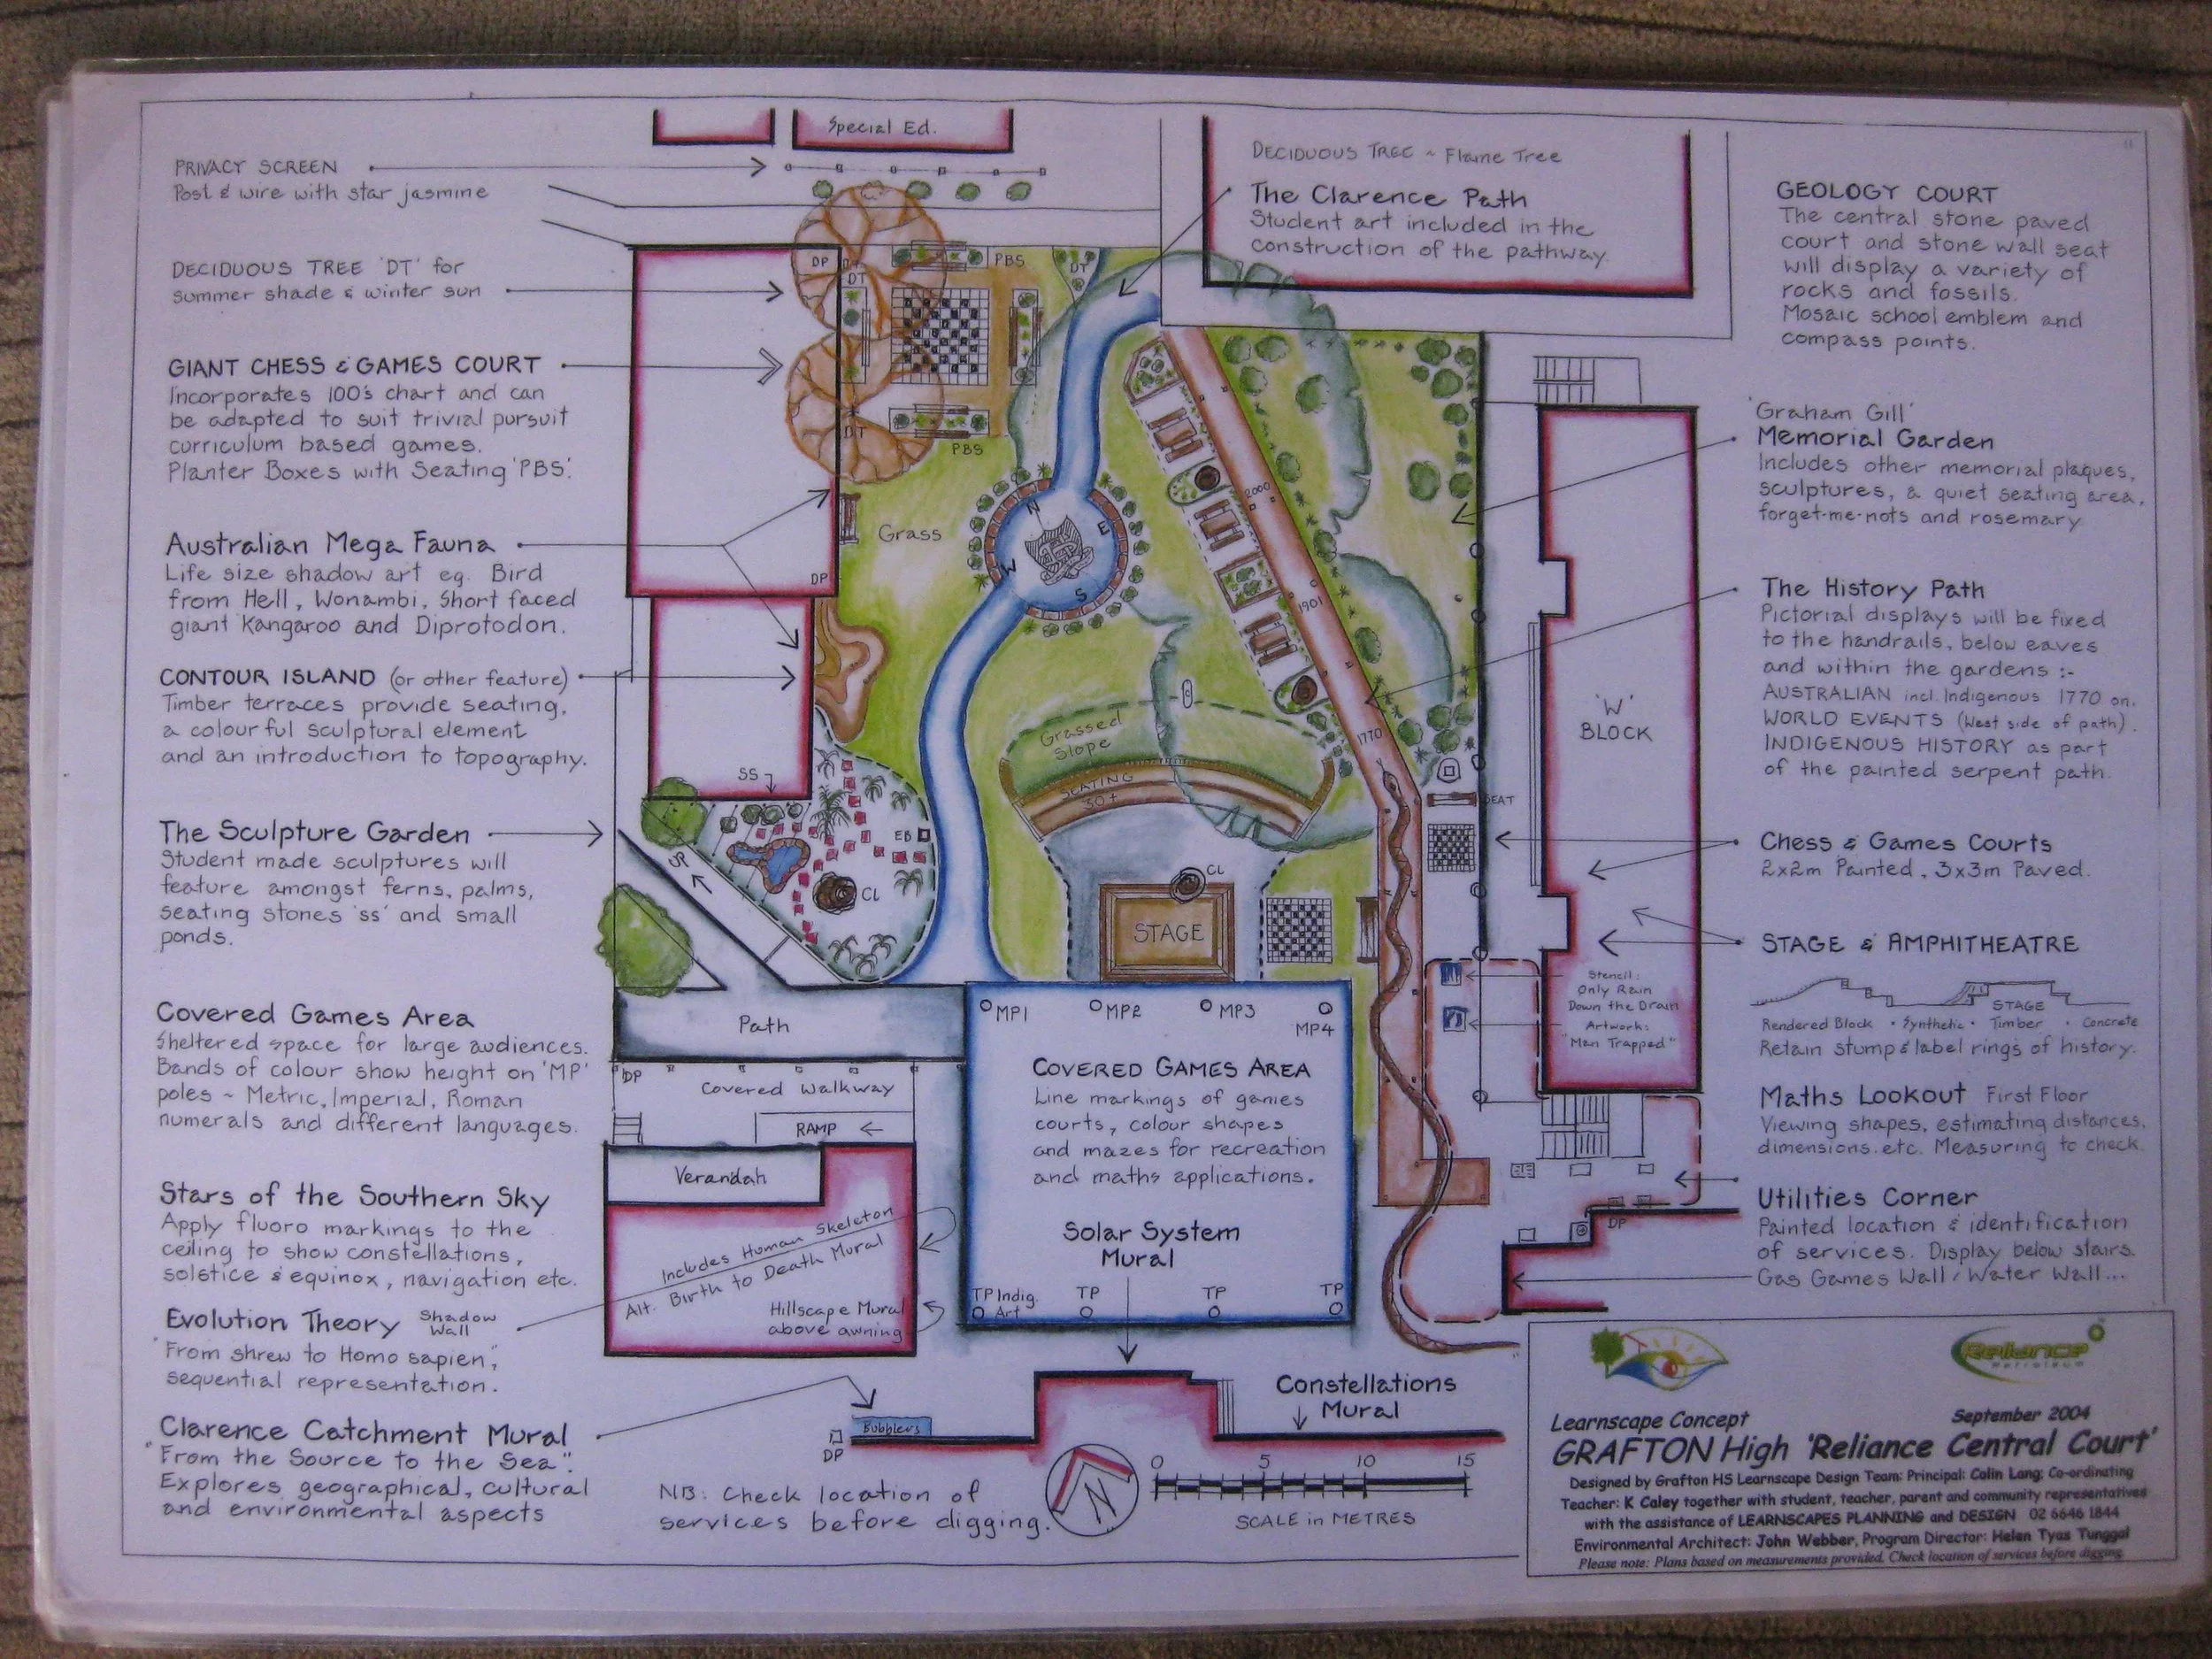 Special Ed.
PRIVACY SCREEN
Post & wire with star jasmine
DECIDUOUS TREE 'DT' for
summer shade & winter sun
GIANT CHESS & GAMES COURT
Incorporates 100's chart and can
be adapted to suit trivial pursuit
curriculum based games.
Planter Boxes with Seating 'PBS'.
Australian Mega Fauna
Life size shadow art eg. Bird
from Hell, Wonambi, Short faced
giant Kangaroo and Diprotodon.
CONTOUR ISLAND (or other feature)
Timber terraces provide seating,
a colourful sculptural element
and an introduction to topography.
The Sculpture Garden
Student made sculptures will
feature amongst ferns, palms,
seating stones 'ss' and small
ponds.
Covered Games Area
Sheltered space for large audiences.
Bands of colour show height on 'MP'
poles ~ Metric, Imperial, Roman
numerals and different languages.
Stars of the Southern Sky
Apply fluoro markings to the
ceiling to show constellations,
solstice & equinox, navigation etc.
Evolution Theory Shadow Wall
"From shrew to Homo sapien",
sequential representation.
Clarence Catchment Mural
"From the Source to the Sea".
Explores geographical, cultural
and environmental aspects
DECIDUOUS TREE ~ Flame Tree
The Clarence Path
Student art included in the
construction of the pathway.
DP
DT
DT
DT
DT
PBS
PBS
Grass
N
E
S
W
DP
2000
1901
1770
Grassed
Slope
SEATING
30+
SS
EB
CL
CL
UP
STAGE
SEAT
Path
Covered Walkway
DP
RAMP
Verandah
Includes Human Skeleton
Alt. Birth to Death Mural
Hillscape Mural
above awning
MP1
MP2
MP3
MP4
COVERED GAMES AREA
Line markings of games
courts, colour shapes
and mazes for recreation
and maths applications.
Solar System
Mural
TP Indig.
Art
TP
TP
TP
Bubblers
DP
Constellations
Mural
NB: Check location of
services before digging.
N
0 5 10 15
SCALE in METRES
'W'
BLOCK
Stencil:
Only Rain
Down the Drain
Artwork:
"Man Trapped"
DP
GEOLOGY COURT
The central stone paved
court and stone wall seat
will display a variety of
rocks and fossils.
Mosaic school emblem and
compass points.
'Graham Gill'
Memorial Garden
Includes other memorial plaques,
sculptures, a quiet seating area,
forget-me-nots and rosemary
The History Path
Pictorial displays will be fixed
to the handrails, below eaves
and within the gardens :-
AUSTRALIAN incl. Indigenous 1770 on.
WORLD EVENTS (West side of path).
INDIGENOUS HISTORY as part
of the painted serpent path.
Chess & Games Courts
2x2m Painted, 3x3m Paved.
STAGE & AMPHITHEATRE
STAGE
Rendered Block • Synthetic • Timber • Concrete
Retain stump & label rings of history.
Maths Lookout First Floor
Viewing shapes, estimating distances,
dimensions.etc. Measuring to check.
Utilities Corner
Painted location & identification
of services. Display below stairs.
Gas Games Wall / Water Wall...
Reliance
Petroleum
Learnscape Concept September 2004
GRAFTON High 'Reliance Central Court'
Designed by Grafton HS Learnscape Design Team: Principal: Colin Lang; Co-ordinating
Teacher: K Caley together with student, teacher, parent and community representatives
with the assistance of LEARNSCAPES PLANNING and DESIGN 02 6646 1844
Environmental Architect: John Webber, Program Director: Helen Tyas Tunggal
Please note: Plans based on measurements provided. Check location of services before digging.